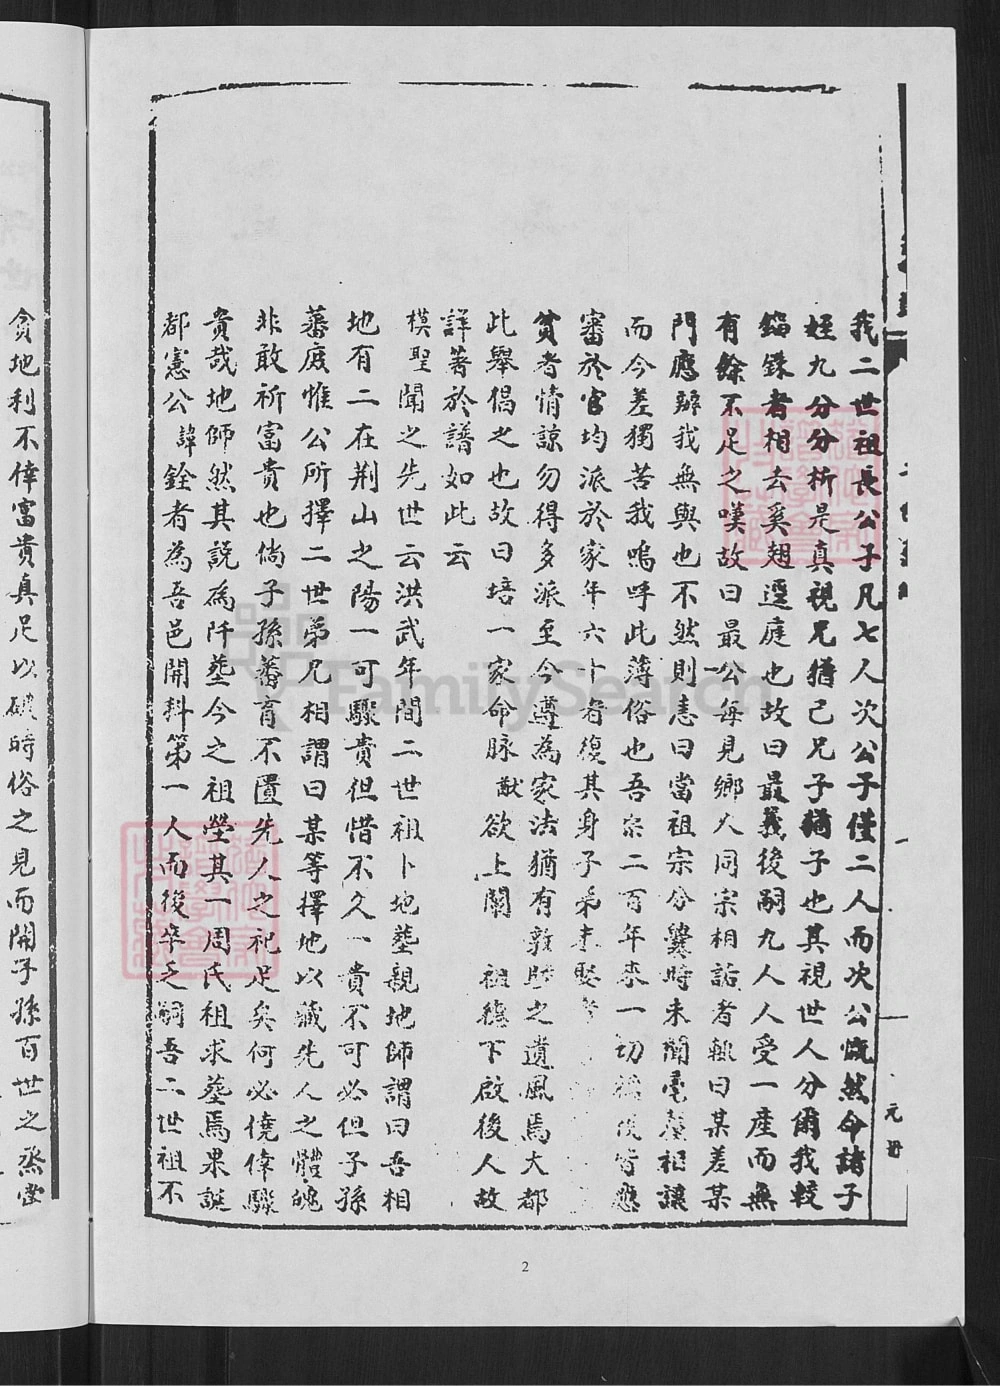 我二世祖長公子凡七人次公子僅二人而次公慨然命諸子
姪九分分析是真視兄猶己兄子猶子也其視世人分爾我較
錙銖者相去奚翅逕庭也故曰最義後嗣九人人受一產而無
有餘不足之嘆故曰最公每見鄉人同宗相詬者輒曰某差某
門應辦我無與也不然則恚曰當祖宗分爨時未聞毫釐相讓
而今差獨苦我嗚呼此薄俗也吾宗二百年來一切
審於官均派於家年六十者復其身子弟未娶
貧者情諒勿得多派至今遵為家法猶有敦睦之遺風焉大都
此舉倡之也故曰培一家命脉猷欲上闡 祖德下啟後人故
詳著於譜如此云
模聖聞之先世云洪武年間二世祖卜地塟親地師謂曰吾相
地有二在荆山之陽一可驟貴但惜不久一貴不可必但子孫
蕃庶惟公所擇二世弟兄相謂曰某等擇地以藏先人之體魄
非敢祈富貴也倘子孫蕃育不匱先人之祀足矣何必僥倖驟
貴哉地師然其說為阡塟今之祖塋其一周氏祖求塟焉果誕
都憲公諱銓者為吾邑開科第一人而後卒乏嗣吾二世祖不
貪地利不倖富貴真足以破時俗之見而開子孫百世之烝嘗
元册
2
FamilySearch